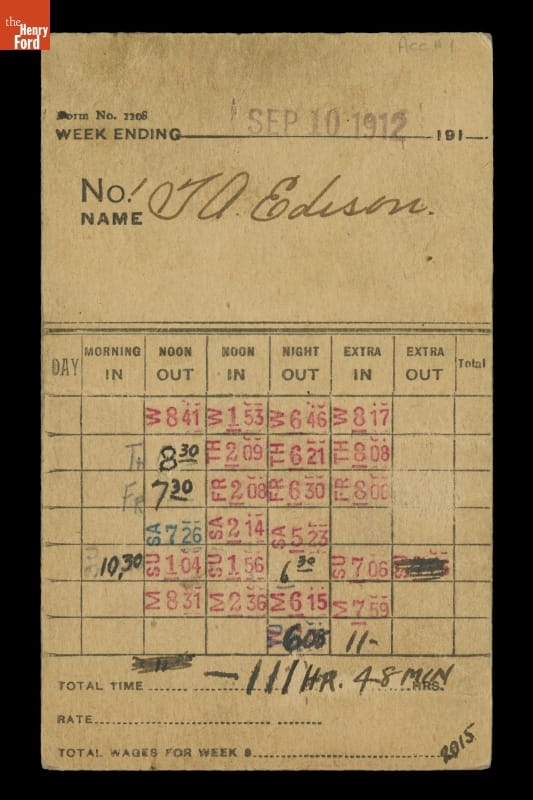 the Henry Ford
Acc #1
Form No. 1208
WEEK ENDING SEP 10 1912 191
No. 1
NAME T A. Edison.
DAY MORNING IN NOON OUT NOON IN NIGHT OUT EXTRA IN EXTRA OUT Total
W 8 41 W 1 53 W 6 46 W 8 17
TH 8 30 TH 2 09 TH 6 21 TH 8 08
FR 7 30 FR 2 08 FR 6 30 FR 8 00
SA 7 26 SA 2 14 SA 5 23
SU 10,30 SU 1 04 SU 1 56 6 30 SU 7 06 SU
M 8 31 M 2 36 M 6 15 M 7 59
6 05 11-
TOTAL TIME 111 HR. 48 MIN HRS.
RATE
TOTAL WAGES FOR WEEK $
2015